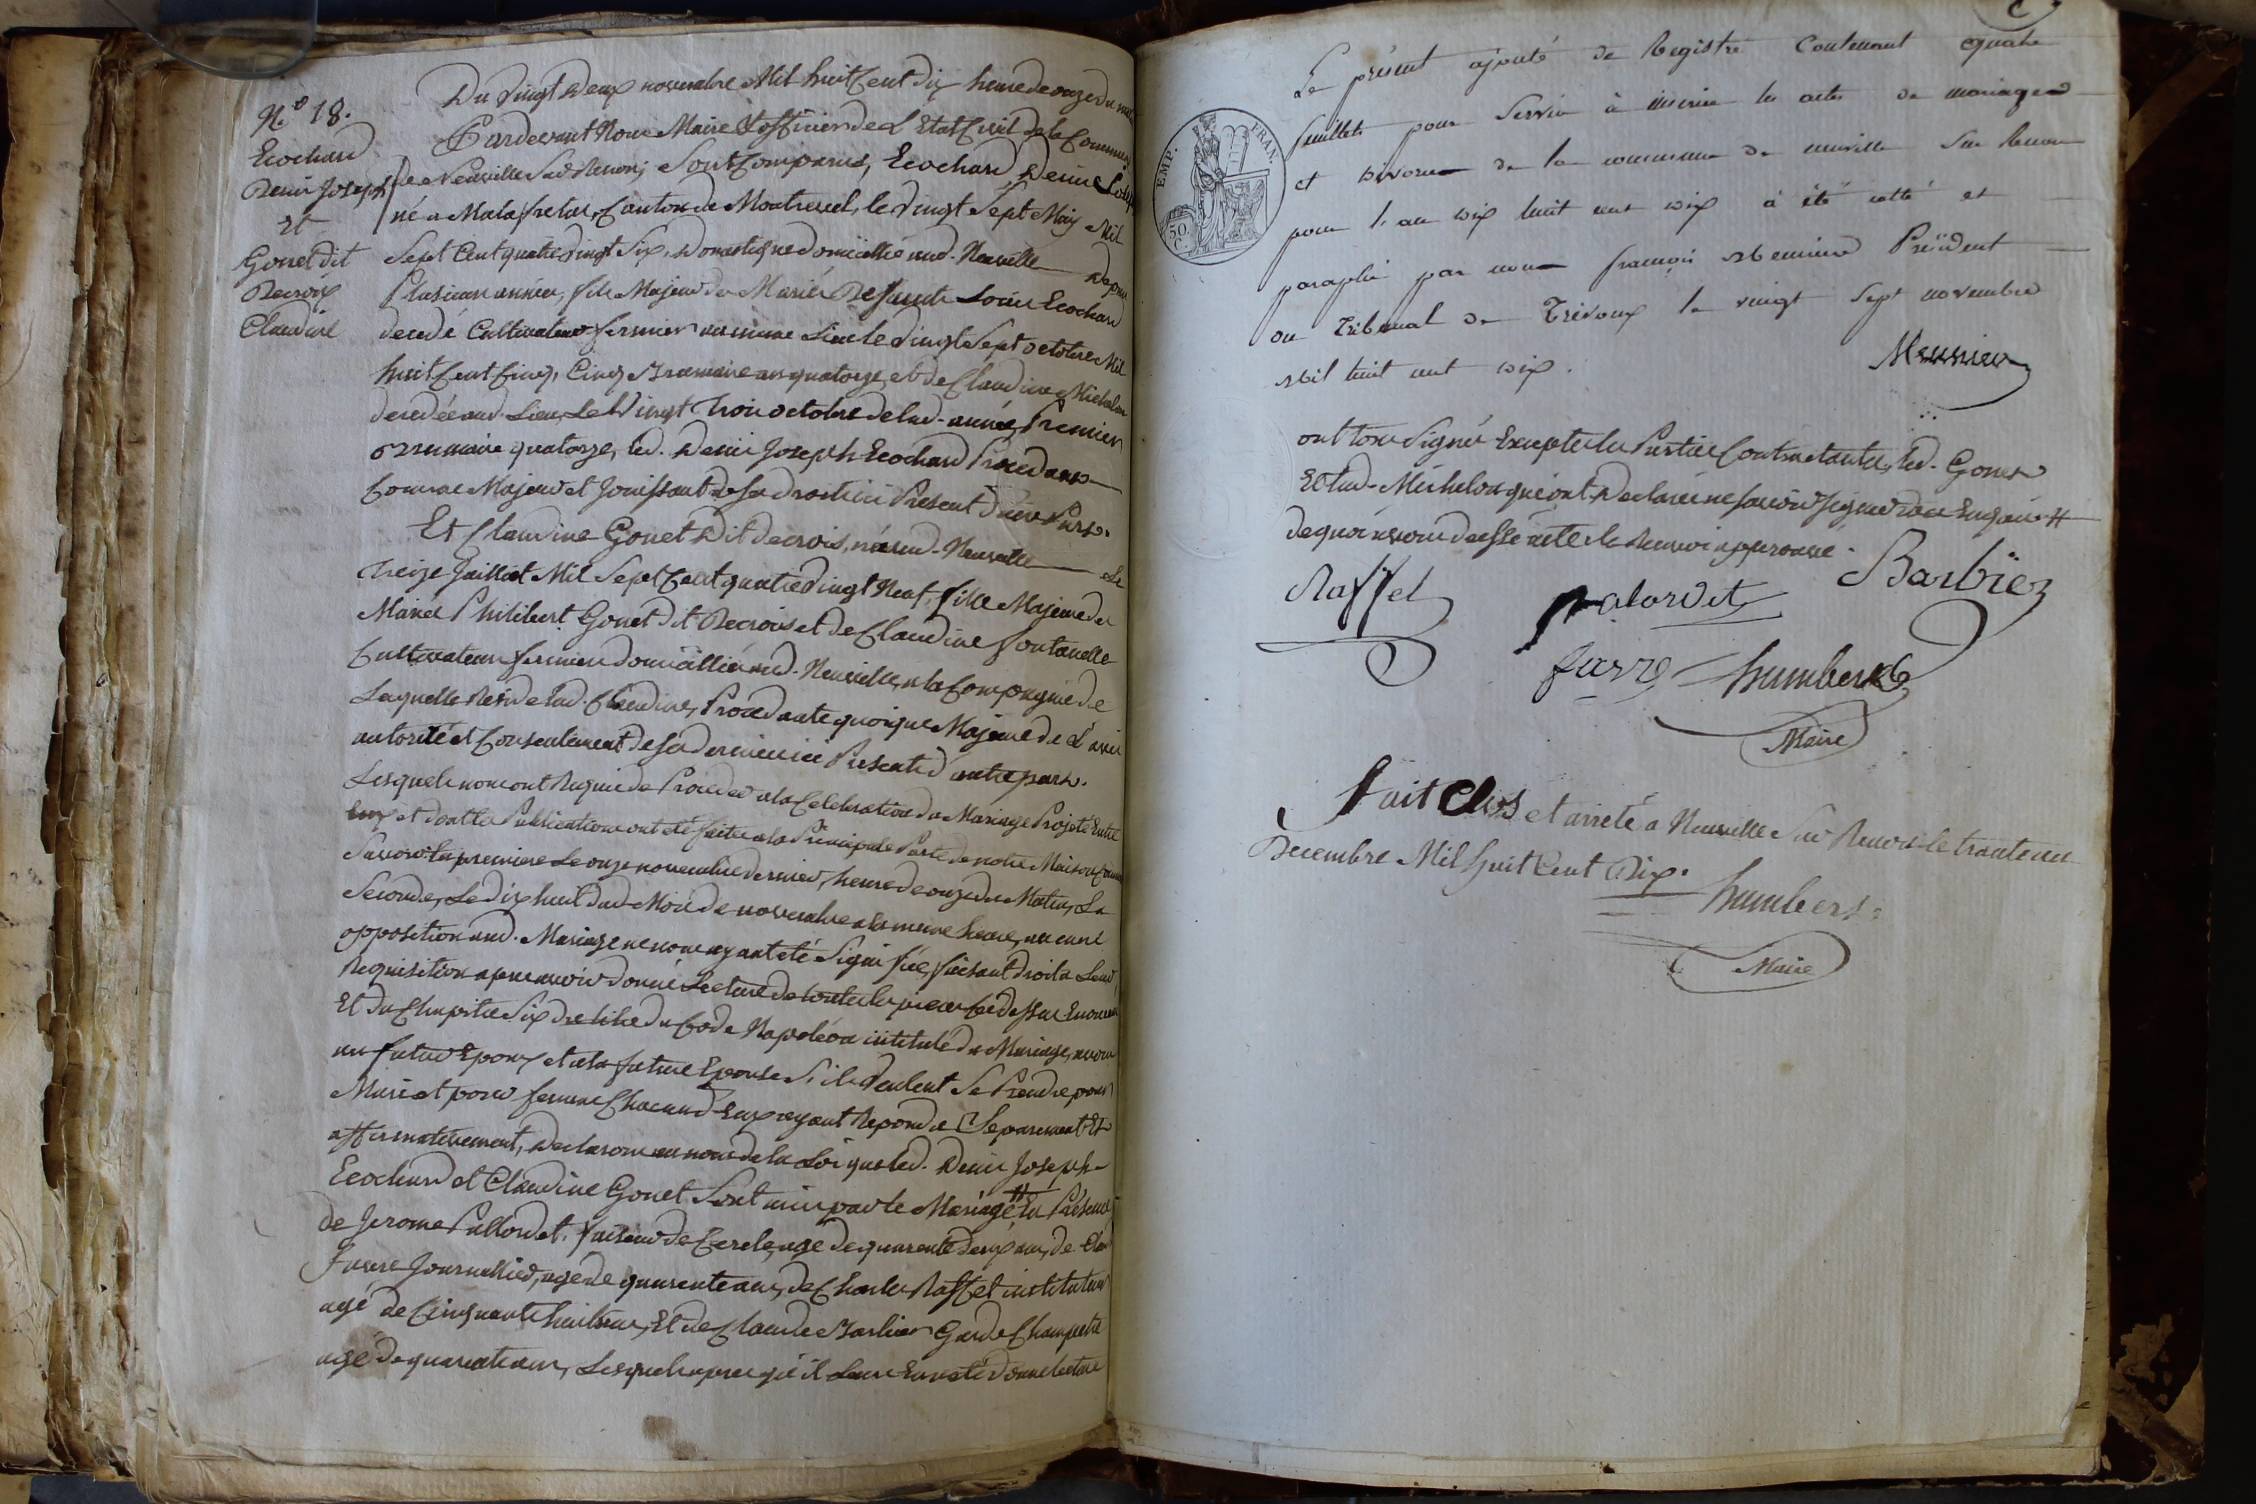 N.º 18.
Ecochard
Denis Joseph
Et
Gonet dit
Decrois
Claudine
Du Vingt Deux novembre Mil huit Cent dix heure de onze du matin
Pardevant Nous Maire Et officier de L'Etat Civil de la Commune
de Neuville Sur Renon, Sont Comparus, Ecochard Denis Joseph
né a Malafretas, Canton de Montrevel, le Vingt Sept May Mil
Sept Cent quatre Vingt Six, Domestique domicillié aud. Neuville Depuis
Plusieurs années, fils Majeur des Mariés Defunts Ecochard
decedé Cultivateur fermier au meme Lieu le Vingt Sept octobre Mil
huit Cent Cinq, Cinq Brumaire an quatorze, et de Claudine Michelon
decedée aud. Lieu, Le Vingt Trois octobre de lad. année, Premier
Brumaire quatorze, led. Denis Joseph Ecochard Procedant
Comme Majeur et Jouissant de ses droits ici Present d'une Part.
Et Claudine Gonet Dit Decrois, née aud. Neuville Le
Treize Juillet Mil Sept Cent quatre Vingt Neuf, fille Majeure des
Mariés Philibert Gonet dit Decrois et de Claudine fontanelle
Cultivateurs fermiers domicilliés aud. Neuville, a la Compagnie de
Laquelle Reside lad. Claudine, Procedante quoique Majeure de L'avis
autorité et Consentement de ses derniers ici Presents d'autre part.
Lesquels nous ont Requis de Proceder a la Celebration du Mariage Projeté Entre
Eux et dont les Publications ont été faites a la Principale Porte de notre Maison Commune
Savoir la premiere Le onze novembre dernier, heure de onze du Matin, La
Seconde, Le dix huit dud. Mois de novembre a la meme heure, aucune
opposition aud. Mariage ne nous ayant été Signifiée, faisant droit a Leur
Requisition apres avoir donné Lecture de toutes les pieces Cy dessus Enoncées
Et du Chapitre Six du titre du Code Napoléon intitulé du Mariage, avons
au futur Epoux et a la future Epouse S'ils Veulent Se Prendre pour
Mari et pour femme Chacun d'Eux ayant Repondu Separement Et
affirmativement, Declarons au nom de la Loi que led. Denis Joseph
Ecochard et Claudine Gonet Sont unis par le Mariage # En Présence
de Jerome Pallordet, faiseur de Cercle, agé de quarente deux ans, de
Favre Journallier, agé de quarente ans, de Charles Raffet instituteur
agé de Cinquante huit ans, Et de Claude Barbier Garde Champetre
agé de quarente ans, Lesquels apres qu'il Leur En a été donné lecture
Le présent ajouté de Registre Contenant quatre
feuillets pour servir à inscrire les actes de mariages
et divorces de la commune de neuville sur Renon
pour l'an dix huit cent dix à été cotté et
paraphé par nous françois Meunier Président
au Tribunal de Trévoux le vingt Sept novembre
Mil huit cent dix.
Meunier
EMP. FRAN.
50
C.
ont tous Signés Excepté les Parties Contractantes, led. Gonet
Et lad. Michelon qui ont Declarés ne savoir signer de ce Enquis #
de quoi avons dressé acte le Renvoi approuvé.
Raffet
palordet
Barbier
favre
humbert
Maire
fait Clos et arreté a Neuville Sur Renon le trante un
Decembre Mil huit Cent Dix.
humbert
Maire